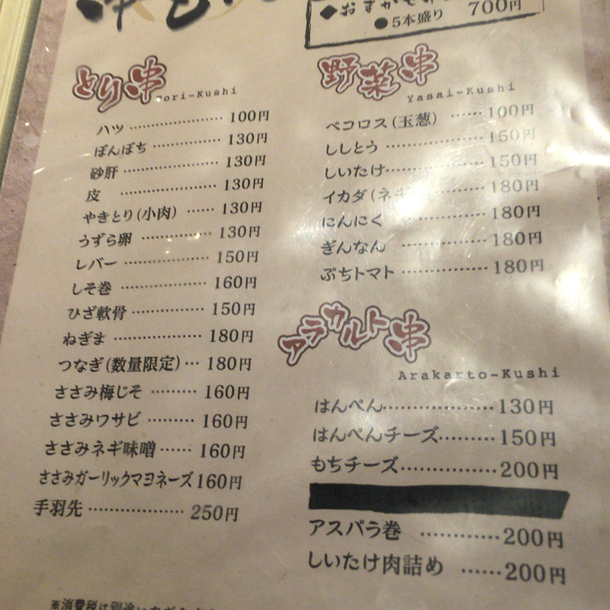 ●5本盛り 700円
とり串
Tori-Kushi
ハツ……………… 100円
ぼんぼち……………130円
砂肝 ……………130円
皮 ………………130円
やきとり(小肉)……130円
うずら卵 …………130円
レバー……………150円
しそ巻 ……………160円
ひざ軟骨……………150円
ねぎま………………180円
つなぎ(数量限定)…180円
ささみ梅じそ ………160円
ささみワサビ ………160円
ささみネギ味噌……160円
ささみガーリックマヨネーズ160円
手羽先………………250円
野菜串
Yasai-Kushi
ペコロス(玉葱) ……100円
ししとう……………150円
しいたけ……………150円
イカダ(ネギ 180円
にんにく …………180円
ぎんなん …………180円
ぷちトマト…………180円
アラカルト串
Arakarto-Kushi
はんぺん……………130円
はんぺんチーズ………150円
もちチーズ…………200円
アスパラ巻 …………200円
しいたけ肉詰め ……200円
※消費税は別途